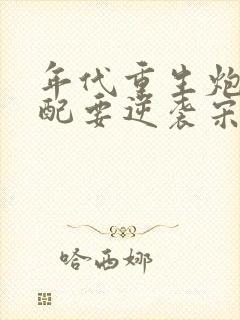 年代重生炮
配要逆袭宋
哈西娜